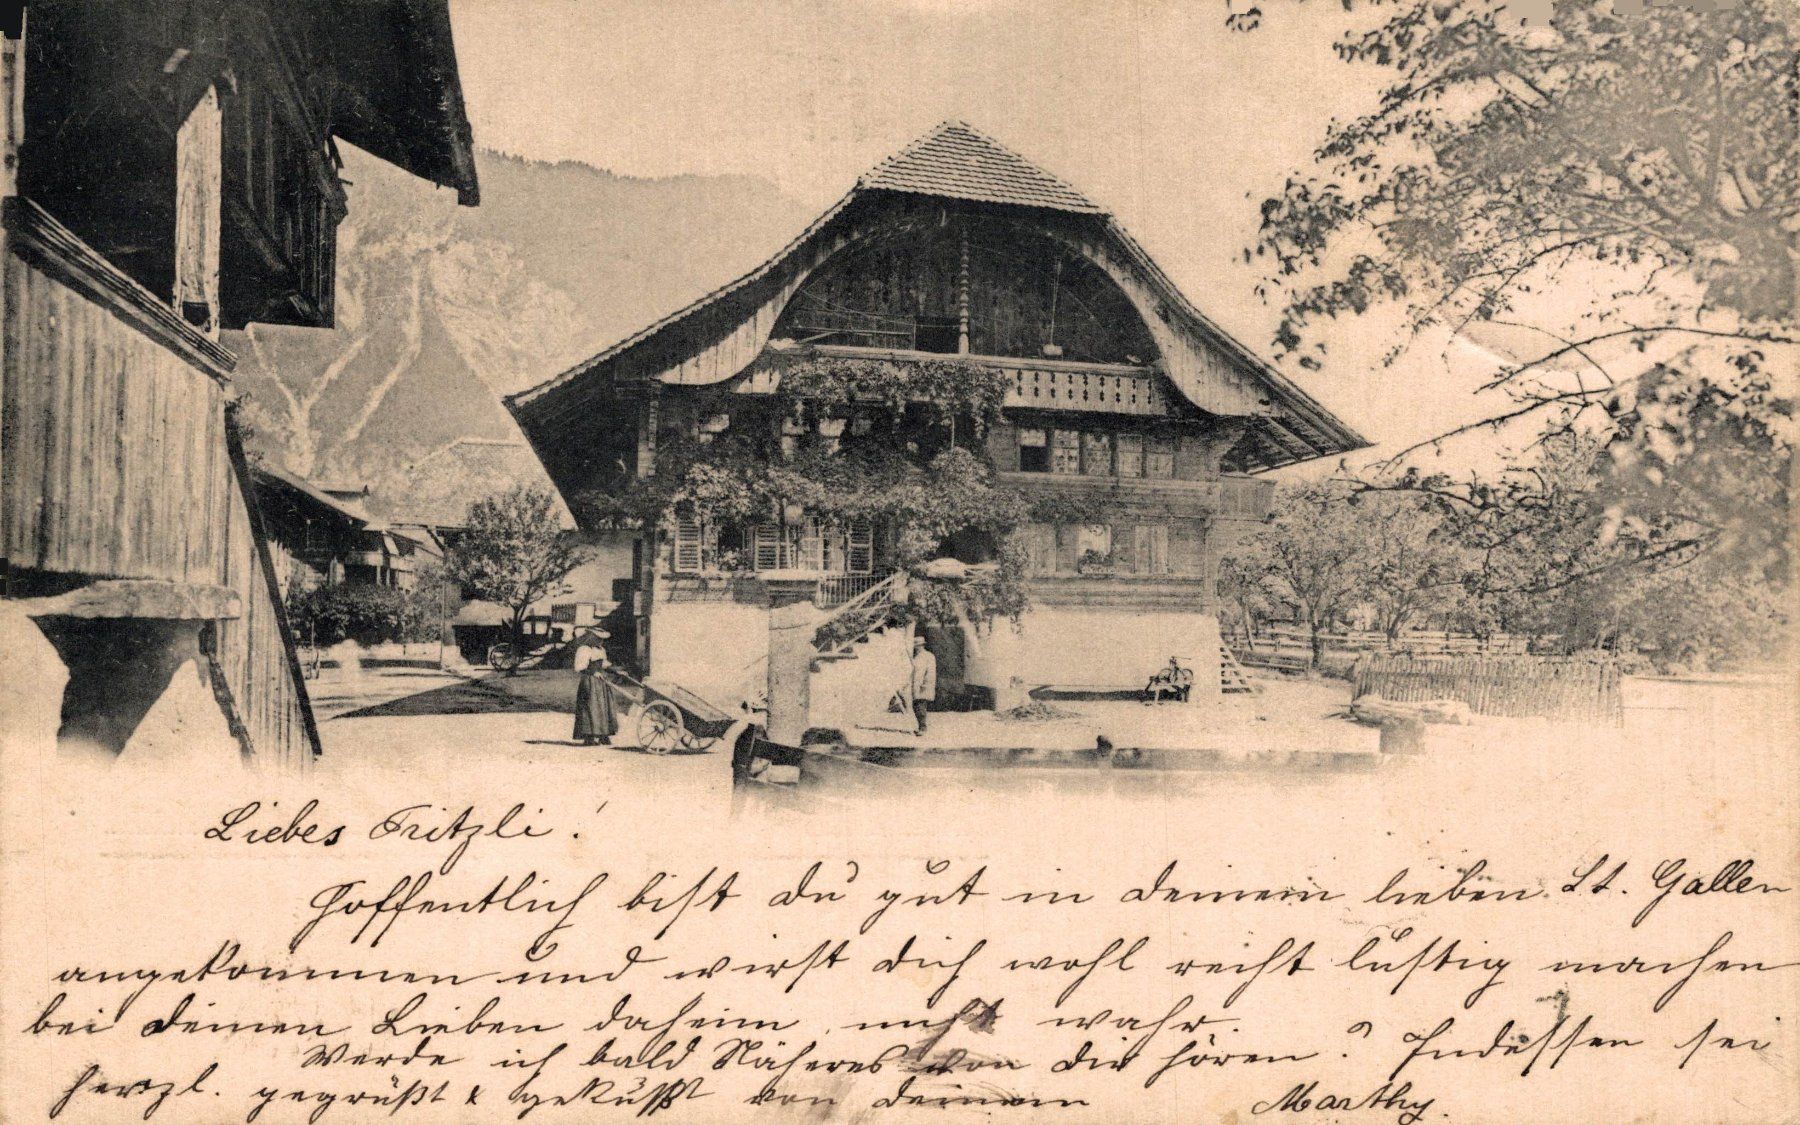 Liebes Fritzli!
Hoffentlich bist du gut in deinem lieben St. Gallen
angekommen und wirst dich wohl recht lustig machen
bei deinen Lieben daheim, nicht wahr.
Werde ich bald Näheres von dir hören? Indessen sei
herzl. gegrüßt & geküßt von deinem Marthy.